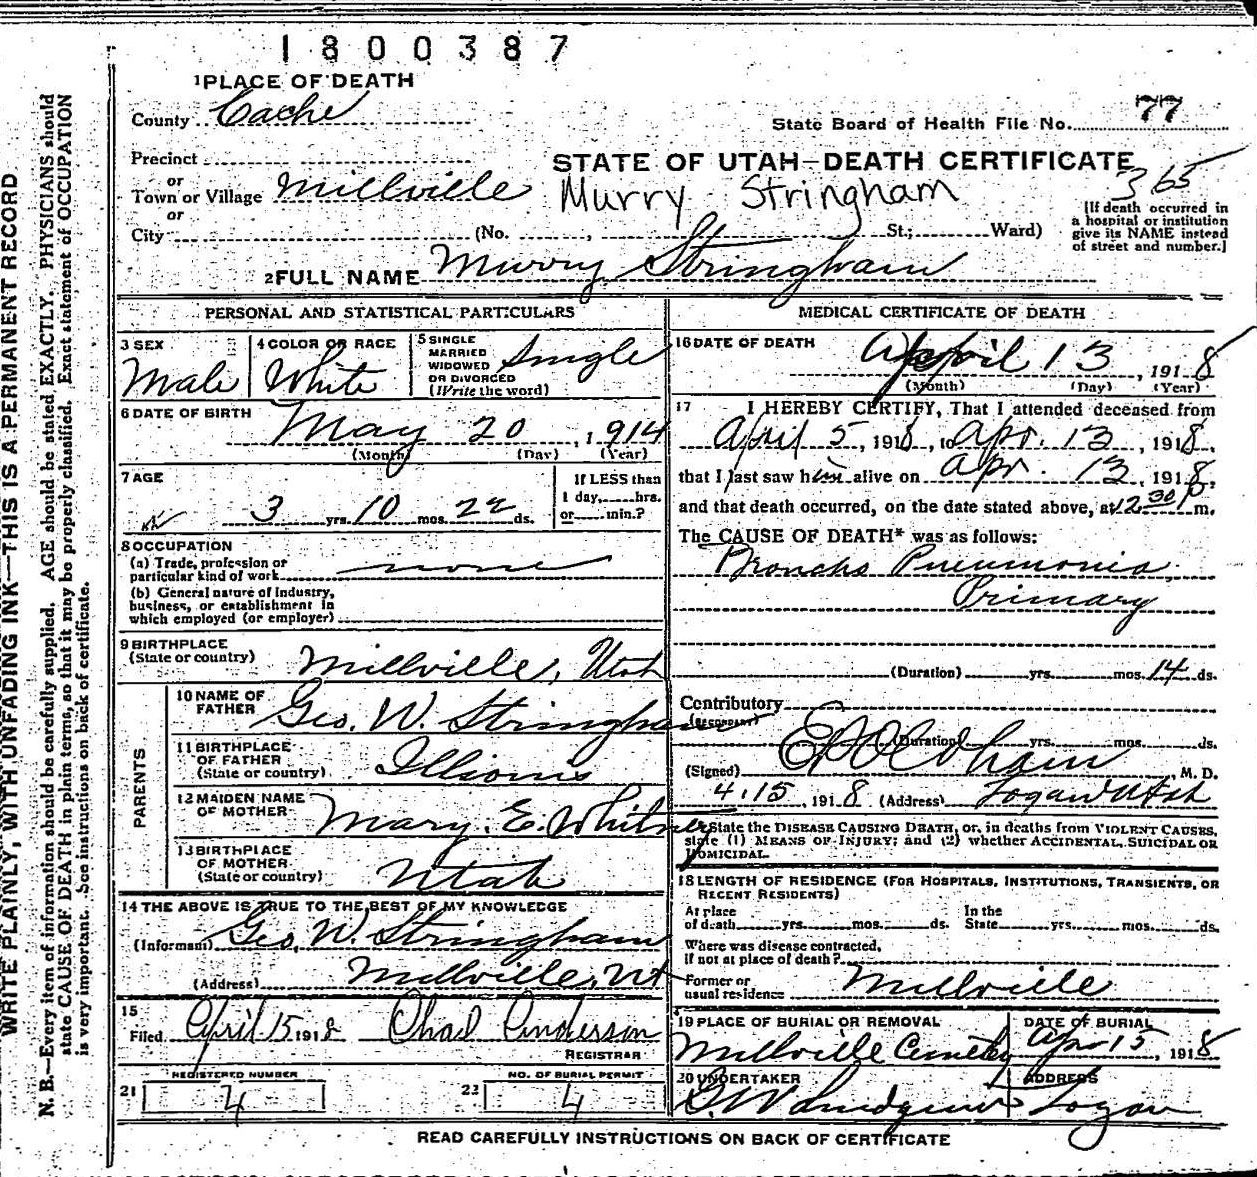 1800387
1 PLACE OF DEATH
County Cache
State Board of Health File No. 77
Precinct
STATE OF UTAH—DEATH CERTIFICATE
or
Town or Village Millville
Murry Stringham
365
or
City (No. , St.; Ward)
[If death occurred in
a hospital or institution
give its NAME instead
of street and number.]
2 FULL NAME Murry Stringham
PERSONAL AND STATISTICAL PARTICULARS
3 SEX
Male
4 COLOR OR RACE
White
5 SINGLE
MARRIED
WIDOWED
OR DIVORCED
(Write the word)
Single
6 DATE OF BIRTH
May 20, 1914
(Month) (Day) (Year)
7 AGE
3 yrs. 10 mos. 22 ds.
If LESS than
1 day, hrs.
or min.?
8 OCCUPATION
(a) Trade, profession or
particular kind of work none
(b) General nature of industry,
business, or establishment in
which employed (or employer)
9 BIRTHPLACE
(State or country) Millville, Utah
PARENTS
10 NAME OF
FATHER Geo. W. Stringham
11 BIRTHPLACE
OF FATHER
(State or country) Illionis
12 MAIDEN NAME
OF MOTHER Mary. E. Whitney
13 BIRTHPLACE
OF MOTHER
(State or country) Utah
14 THE ABOVE IS TRUE TO THE BEST OF MY KNOWLEDGE
(Informant) Geo. W Stringham
(Address) Millville, Ut
15
Filed April 15 1918 Chad Anderson
REGISTRAR
REGISTERED NUMBER
21 4
NO. OF BURIAL PERMIT
22 4
MEDICAL CERTIFICATE OF DEATH
16 DATE OF DEATH
April 13, 1918
(Month) (Day) (Year)
17 I HEREBY CERTIFY, That I attended deceased from
April 5, 1918, to Apr. 13, 1918,
that I last saw him alive on Apr. 13, 1918,
and that death occurred, on the date stated above, at 12.30 P m.
The CAUSE OF DEATH* was as follows:
Broncho Pneumonia
Primary
(Duration) yrs. mos. 14 ds.
Contributory
(SECONDARY)
(Duration) yrs. mos. ds.
(Signed) , M. D.
4.15, 1918 (Address) Logan Utah
*State the DISEASE CAUSING DEATH, or, in deaths from VIOLENT CAUSES,
state (1) MEANS OF INJURY; and (2) whether ACCIDENTAL, SUICIDAL OR
HOMICIDAL.
18 LENGTH OF RESIDENCE (FOR HOSPITALS, INSTITUTIONS, TRANSIENTS, OR
RECENT RESIDENTS)
At place
of death yrs. mos. ds.
In the
State yrs. mos. ds.
Where was disease contracted,
if not at place of death?
Former or
usual residence Millville
19 PLACE OF BURIAL OR REMOVAL
Millville Cemetery
DATE OF BURIAL
Apr 15, 1918
20 UNDERTAKER
ADDRESS
Logan
READ CAREFULLY INSTRUCTIONS ON BACK OF CERTIFICATE
WRITE PLAINLY, WITH UNFADING INK—THIS IS A PERMANENT RECORD
N. B.—Every item of information should be carefully supplied. AGE should be stated EXACTLY. PHYSICIANS should
state CAUSE OF DEATH in plain terms, so that it may be properly classified. Exact statement of OCCUPATION
is very important. See instructions on back of certificate.